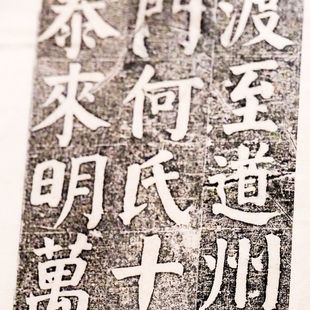 渡至道州
門何氏十
泰來明萬